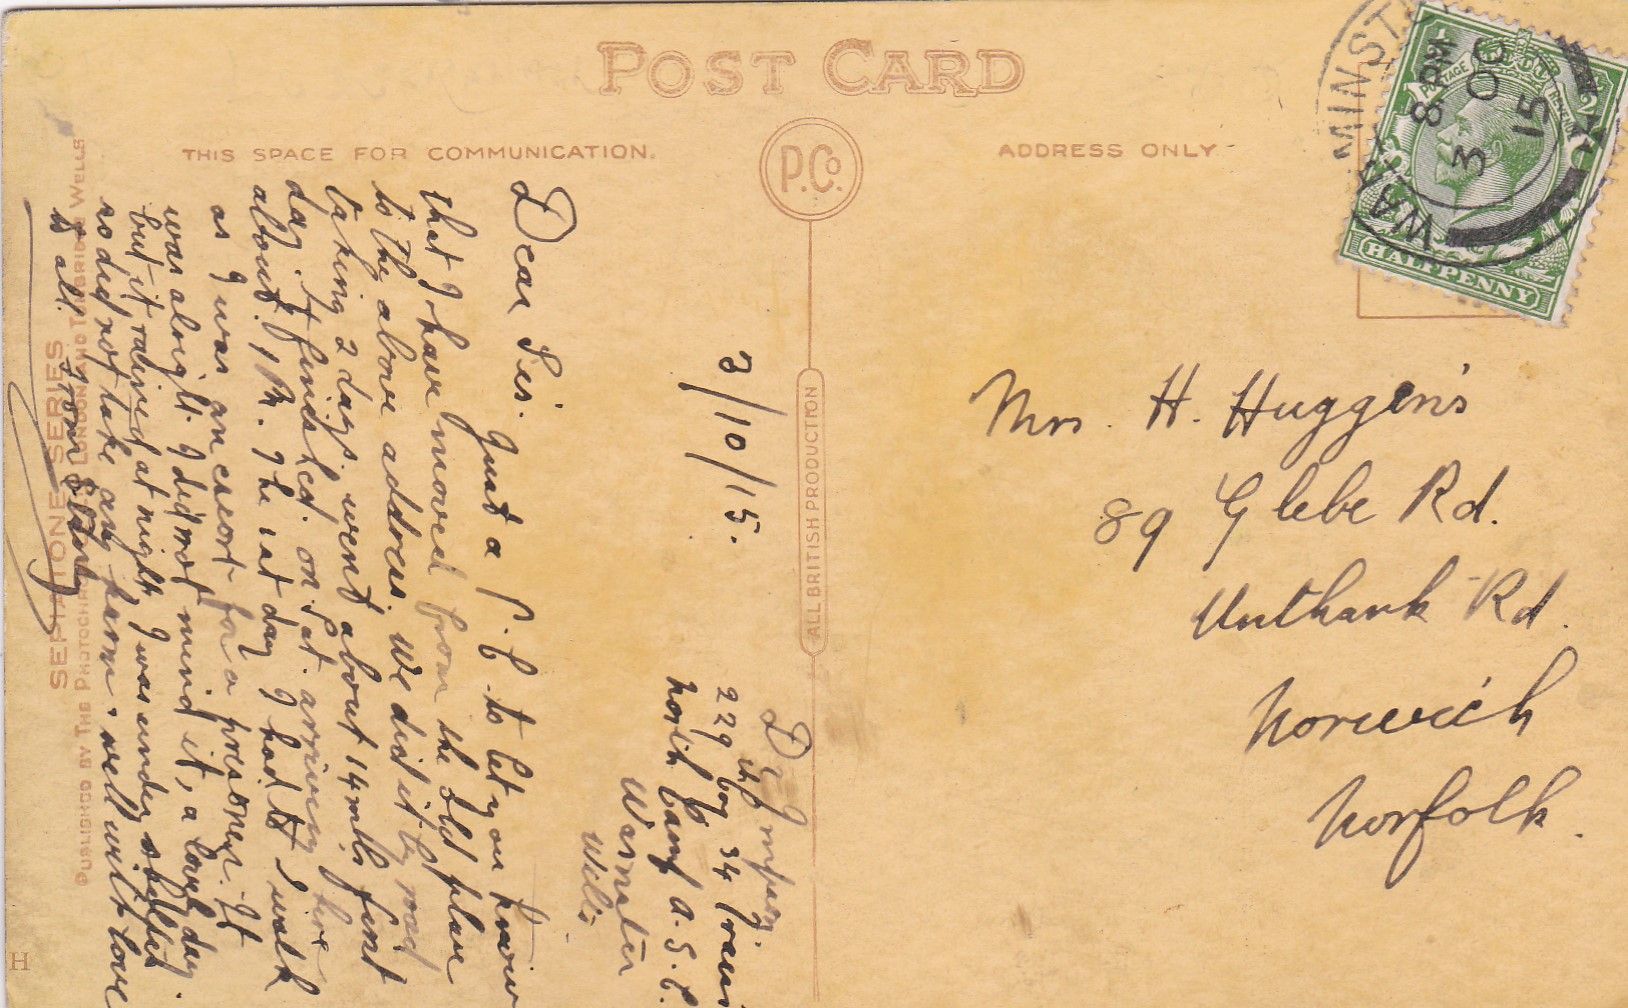 POST CARD
THIS SPACE FOR COMMUNICATION.
ADDRESS ONLY
P.Co.
ALL BRITISH PRODUCTION
SEPIATONE SERIES
PUBLISHED BY THE PHOTOCHROM LONDON AND TUNBRIDGE WELLS
H
WARMINST
8 PM
3 OC
15
POSTAGE
REVENUE
HALFPENNY
Mrs. H. Huggins
89 Glebe Rd.
Unthank Rd.
Norwich
Norfolk.
3/10/15.
229 Coy 34
North Camp A.S.C.
Warmster
Wilts
Dear Sis. Just a P.C to let you know
that I have moved from the old place
to the above address. We did it by road
taking 2 days. went about 14 mls first
day. & finished on Sat. arriving here
about 1 PM. The 1st day I had to walk
as I was an escort for a prisoner. It
was alright. I did not mind it, a lovely day.
but it rained at night. I was under shelter
so did not take any harm. well with love
to all. from